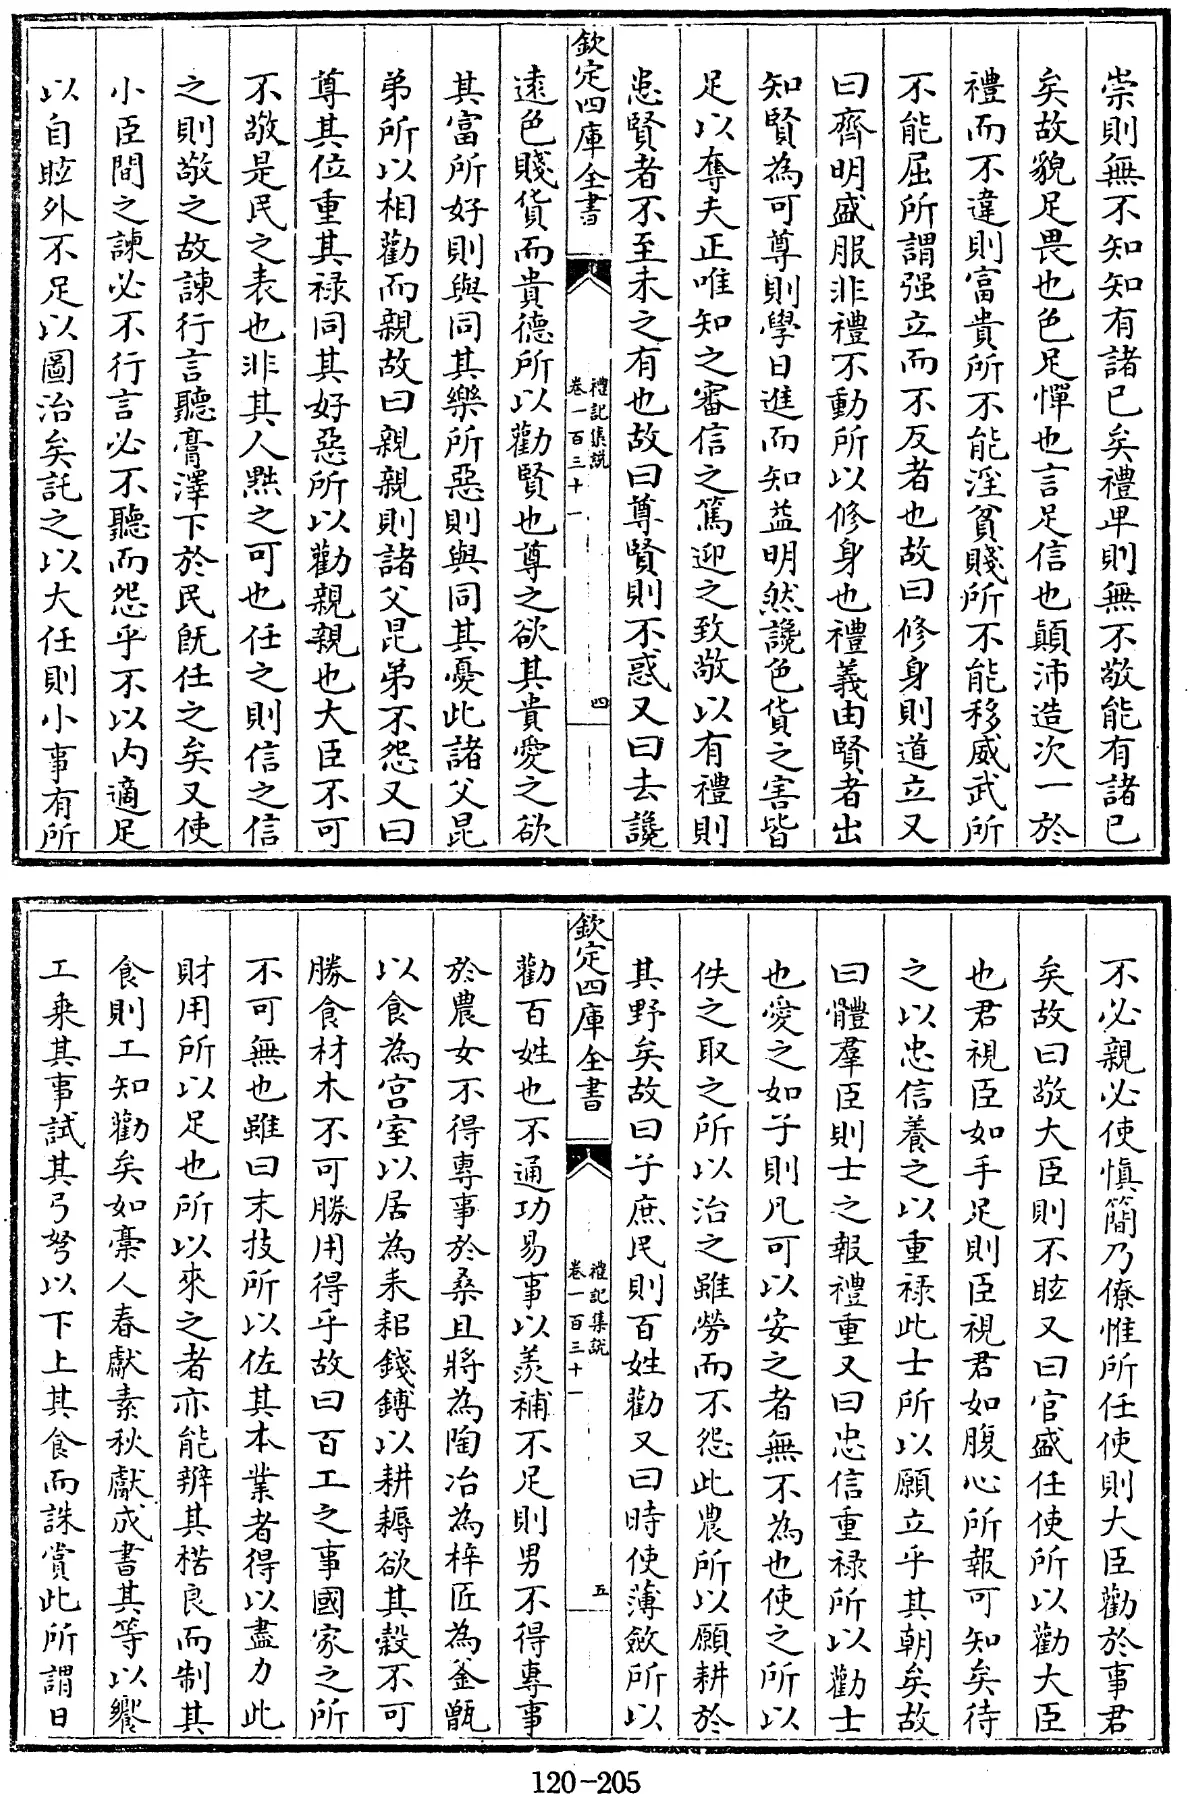 崇則無不知知有諸已矣禮卑則無不敬能有諸已
矣故貌足畏也色足憚也言足信也顛沛造次一於
禮而不違則富貴所不能淫貧賤所不能移威武所
不能屈所謂强立而不反者也故曰修身則道立又
曰齊明盛服非禮不動所以修身也禮義由賢者出
知賢為可尊則學日進而知益明然讒色貨之害皆
足以奪夫正唯知之審信之篤迎之致敬以有禮則
患賢者不至未之有也故曰尊賢則不惑又曰去讒
欽定四庫全書
禮記集說
卷一百三十一
四
遠色賤貨而貴德所以勸賢也尊之欲其貴愛之欲
其富所好則與同其樂所惡則與同其憂此諸父昆
弟所以相勸而親故曰親親則諸父昆弟不怨又曰
尊其位重其祿同其好惡所以勸親親也大臣不可
不敬是民之表也非其人㸃之可也任之則信之信
之則敬之故諫行言聽膏澤下於民旣任之矣又使
小臣間之諫必不行言必不聽而怨乎不以内適足
以自眩外不足以圖治矣託之以大任則小事有所
不必親必使慎簡乃僚惟所任使則大臣勸於事君
矣故曰敬大臣則不眩又曰官盛任使所以勸大臣
也君視臣如手足則臣視君如腹心所報可知矣待
之以忠信養之以重祿此士所以願立乎其朝矣故
曰體羣臣則士之報禮重又曰忠信重祿所以勸士
也愛之如子則凡可以安之者無不為也使之所以
佚之取之所以治之雖勞而不怨此農所以願耕於
其野矣故曰子庶民則百姓勸又曰時使薄斂所以
欽定四庫全書
禮記集說
卷一百三十一
五
勸百姓也不通功易事以羡補不足則男不得專事
於農女不得專事於桑且將為陶冶為梓匠為釜甑
以食為宫室以居為耒耜錢鎛以耕耨欲其穀不可
勝食材木不可勝用得乎故曰百工之事國家之所
不可無也雖曰末技所以佐其本業者得以盡力此
財用所以足也所以來之者亦能辨其楛良而制其
食則工知勸矣如槀人春獻素秋獻成書其等以饗
工乘其事試其弓弩以下上其食而誅賞此所謂日
120-205